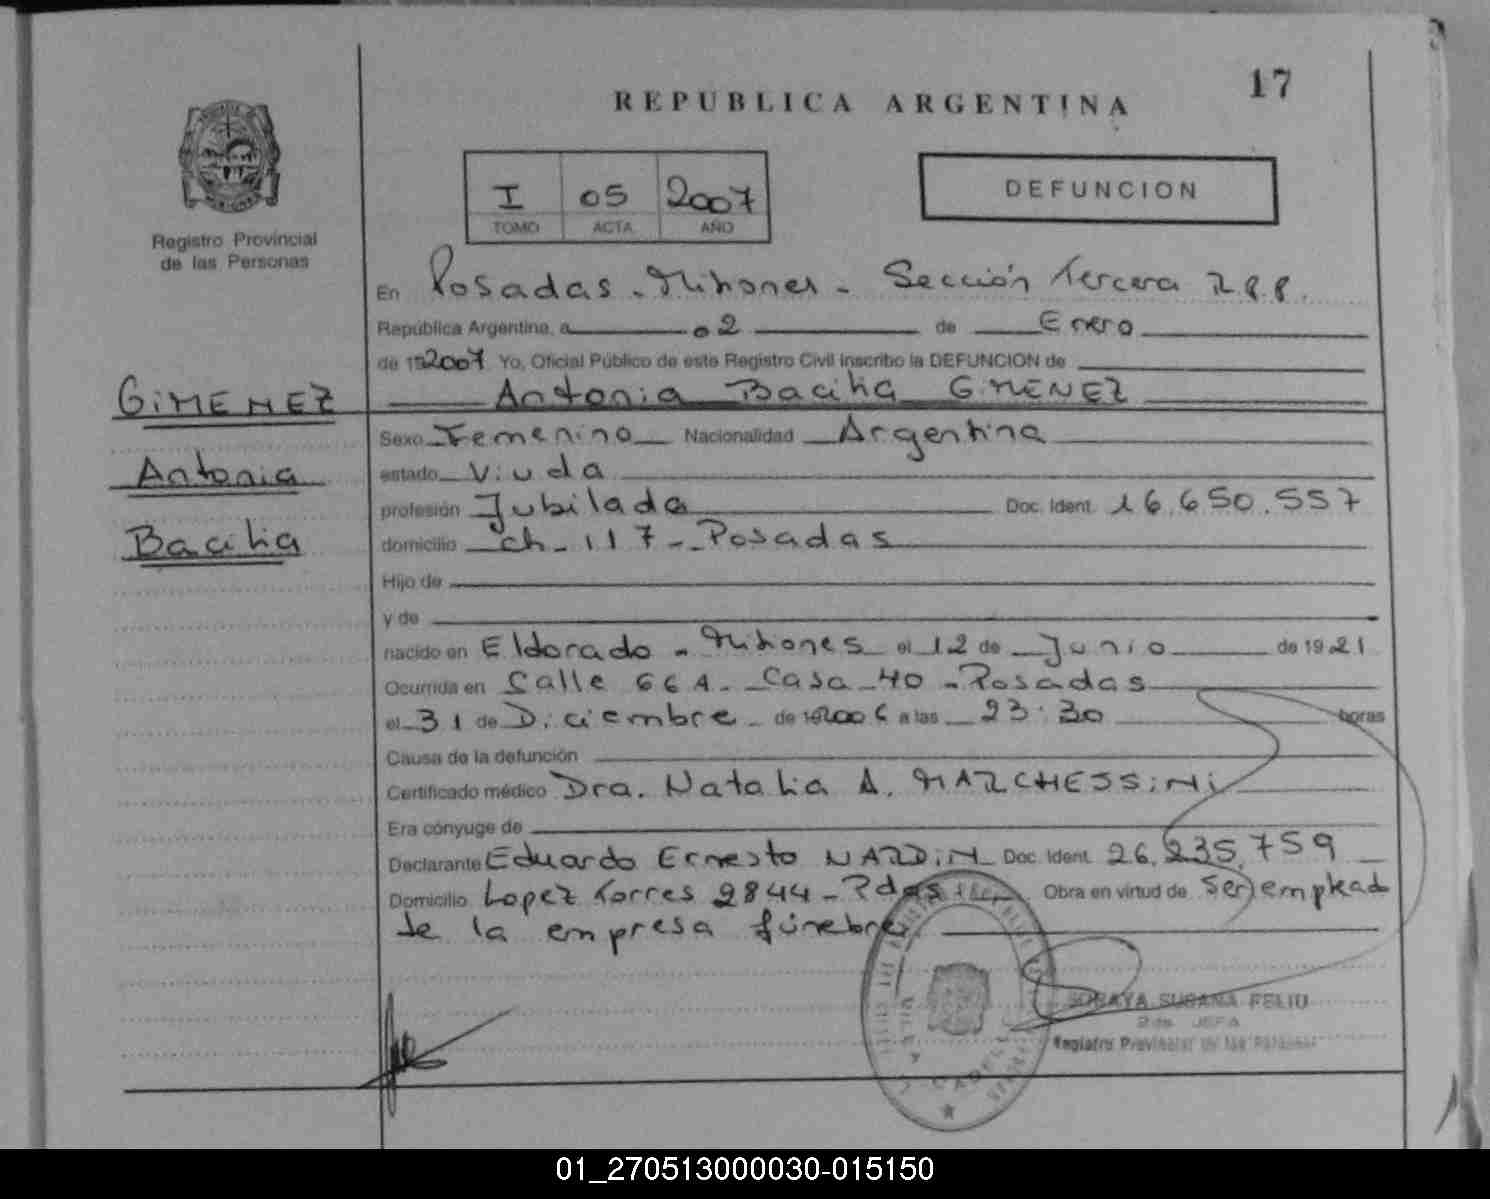 17
REPUBLICA ARGENTINA
I 05 2007
TOMO ACTA AÑO
DEFUNCION
Registro Provincial
de las Personas
En Posadas - Misiones - Sección Tercera R.P.P.
República Argentina, a 02 de Enero
de 192007 Yo, Oficial Público de este Registro Civil inscribo la DEFUNCION de
Antonia Bacilia GIMENEZ
GIMENEZ
Antonia
Bacilia
Sexo Femenino Nacionalidad Argentina
estado Viuda
profesión Jubilada Doc. Ident. 16.650.557
domicilio ch - 117 - Posadas
Hijo de
y de
nacido en Eldorado - Misiones el 12 de Junio de 1921
Ocurrida en Calle 66A - Casa 40 - Posadas
el 31 de Diciembre de 192006 a las 23:30 horas
Causa de la defunción
Certificado médico Dra. Natalia A. MARCHESSiNi
Era cónyuge de
Declarante Eduardo Ernesto NARDiN Doc. Ident. 26.235.759
Domicilio Lopez Torres 2844 - Pdas Obra en virtud de Ser emplead
de la empresa fúnebre
SORAYA SUSANA FELIU
2da. JEFA
Registro Provincial de las Personas
01_270513000030-015150